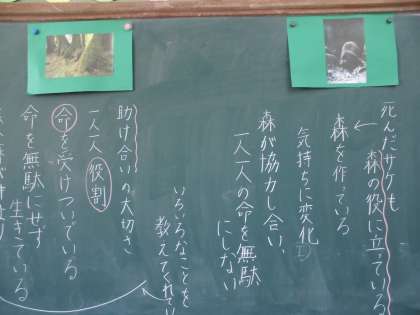 死んだサケも
森の役に立っている
森を作っている
気持ちに変化
森が協力し合い、
一人一人の命を無駄
にしない
いろいろなことを
教えてくれて
助け合いの大切さ
一人一人役割
命を受けついでいる
命を無駄にせず
生きている